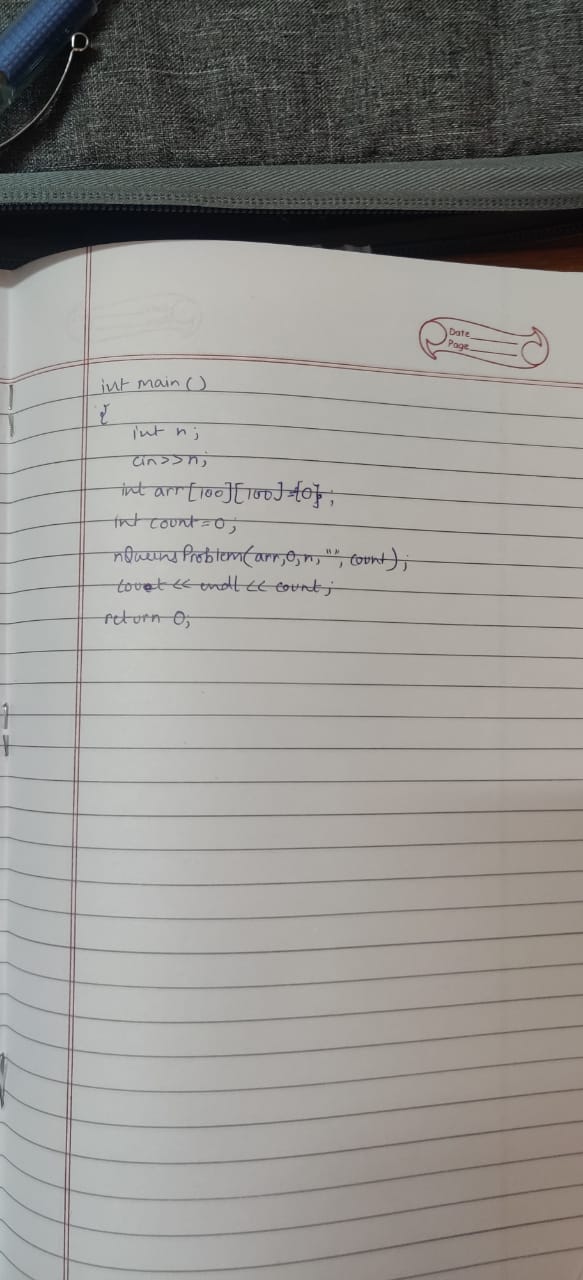 Date
Page
int main()
{
int n;
cin>>n;
int arr[100][100]={0};
int count=0;
nQueensProblem(arr,0,n,"",count);
cout << endl << count;
return 0;